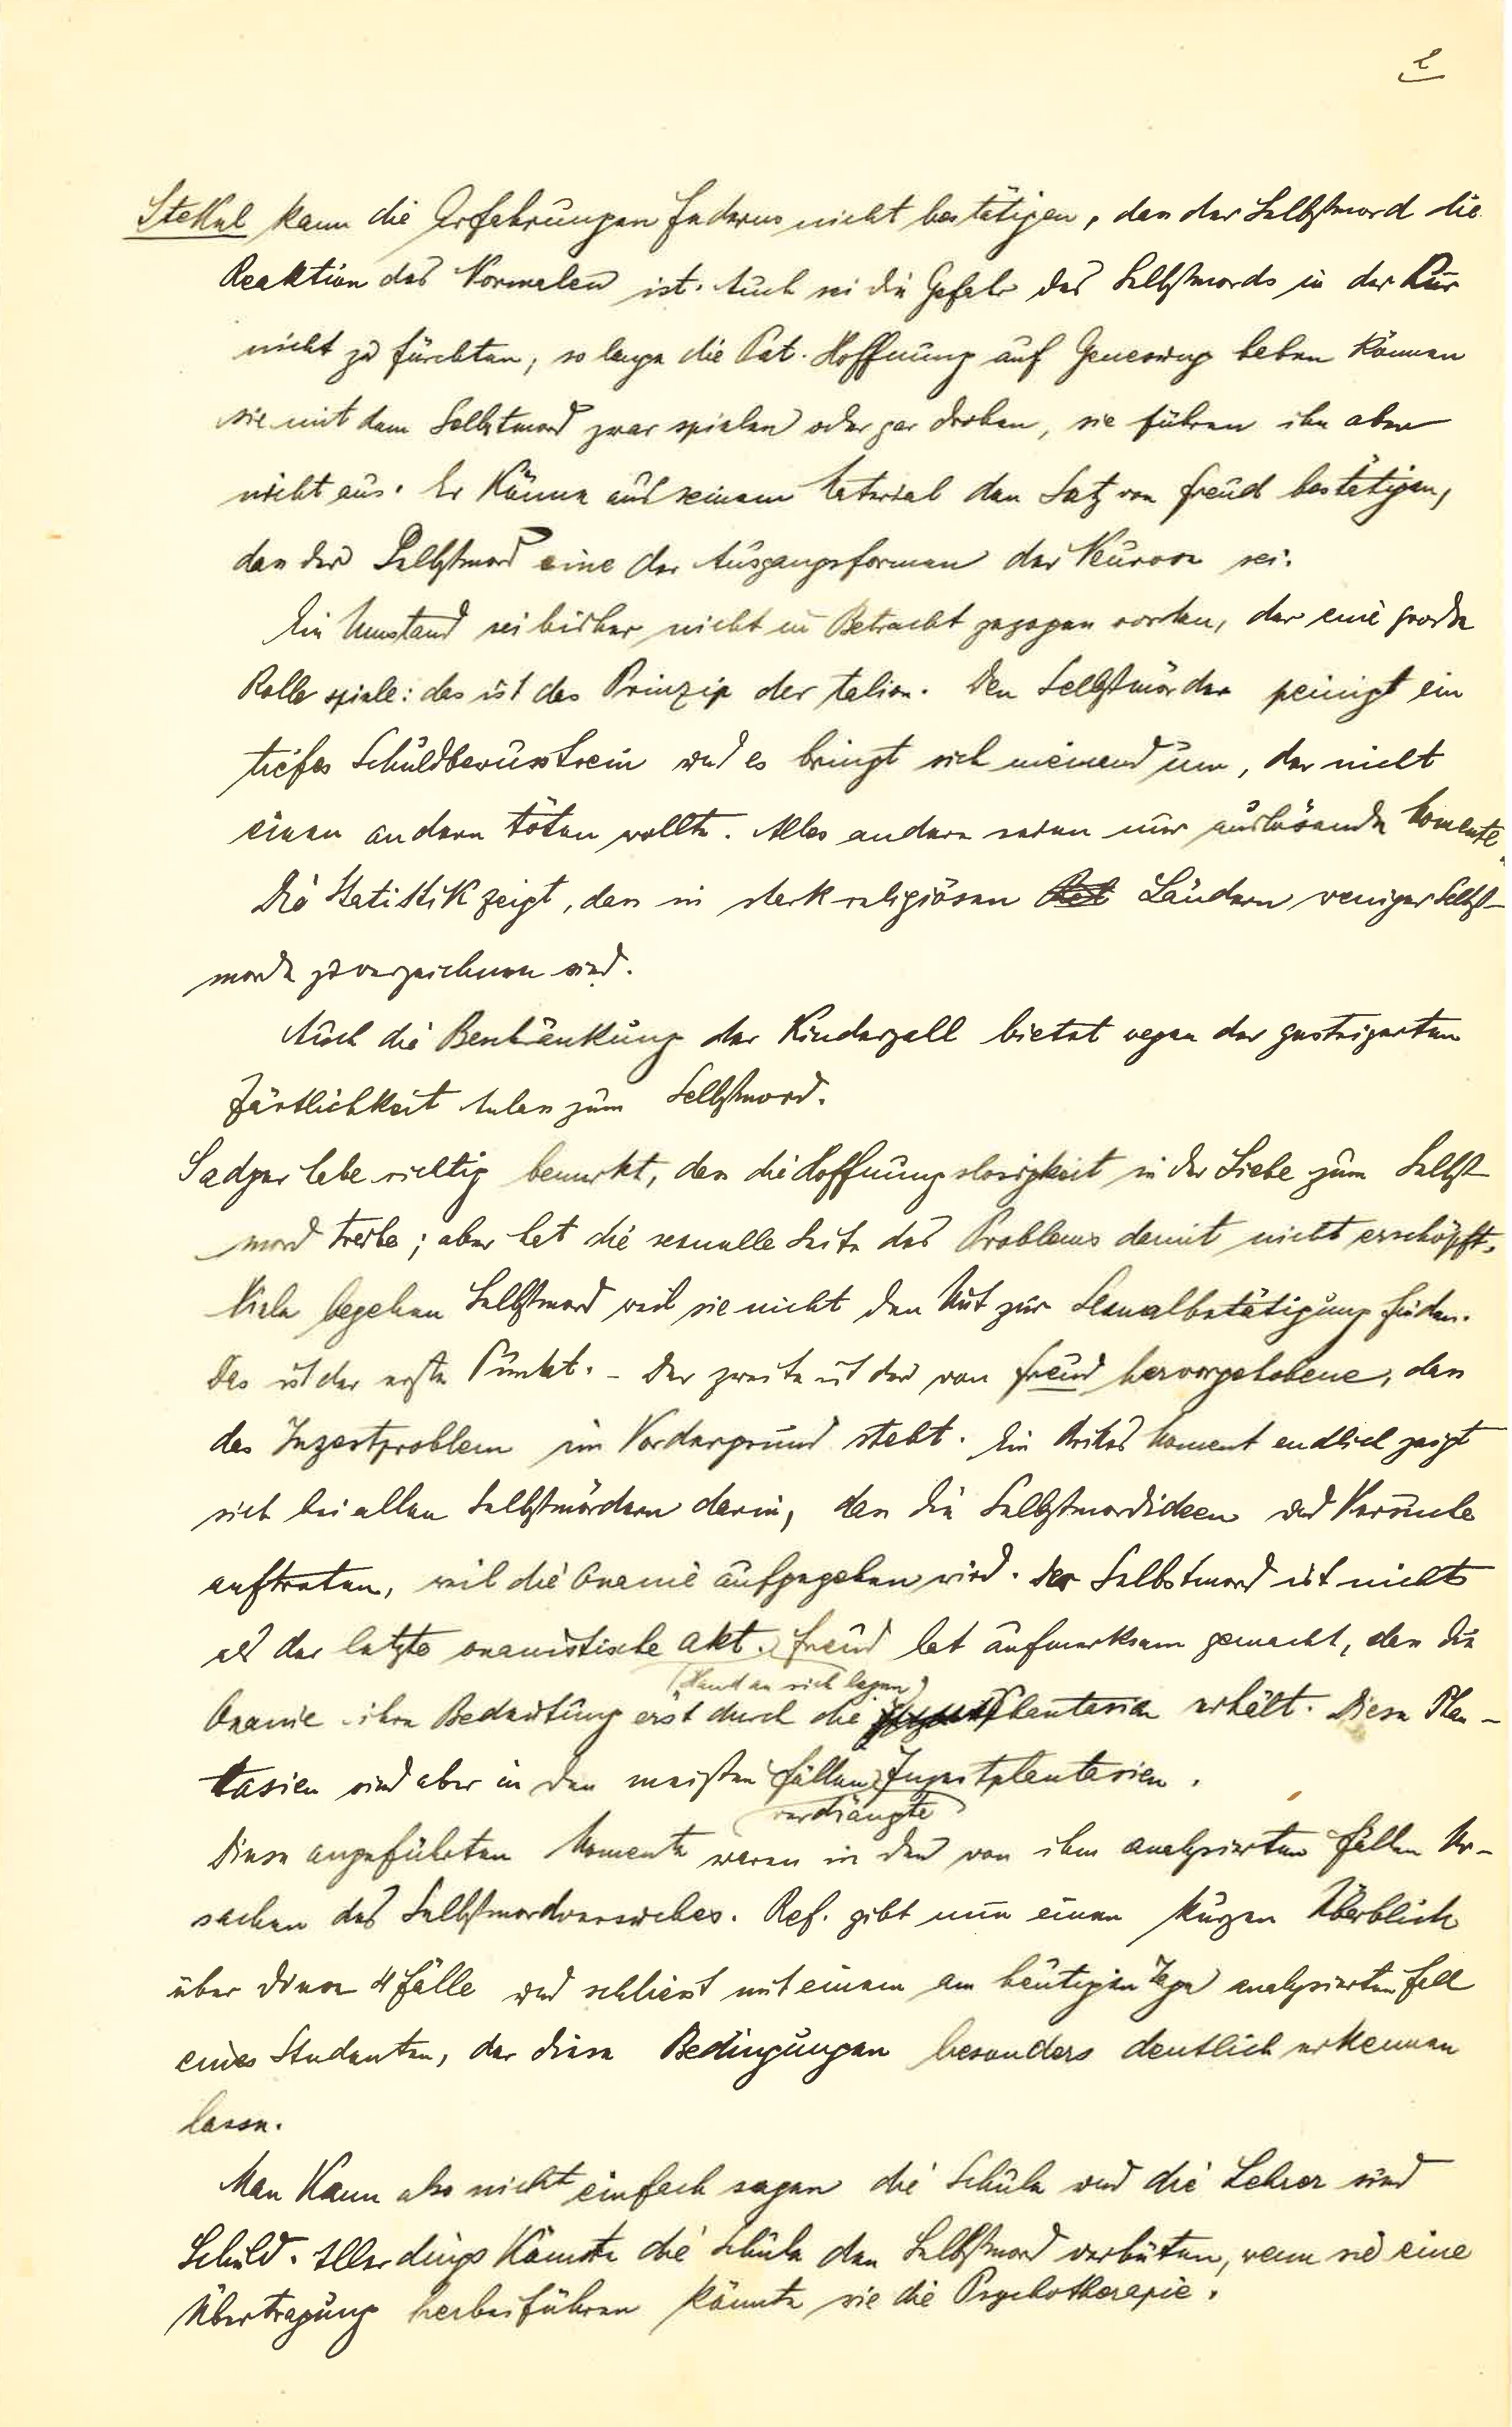 2
Stekel kann die Erfahrungen Federns nicht bestätigen, dass der Selbstmord die
Reaktion des Normalen ist. Auch sei die Gefahr des Selbstmords in der Kur
nicht zu fürchten, so lange die Pat. Hoffnung auf Genesung haben können
sie mit dem Selbstmord zwar spielen oder gar drohen, sie führen ihn aber
nicht aus. Er könne aus seinem Material den Satz von Freud bestätigen,
dass der Selbstmord eine der Ausgangsformen der Neurose sei.
Ein Umstand sei bisher nicht in Betracht gezogen worden, der eine grosse
Rolle spiele: das ist das Prinzip der Talion. Den Selbstmörder peinigt ein
tiefes Schuldbewusstsein und es bringt sich niemand um, der nicht
einen andern töten wollte. Alles andere seien nur auslösende Momente.
Die Statistik zeigt, dass in stark religiösen Ländern weniger Selbst-
morde zu verzeichnen sind.
Auch die Beschränkung der Kinderzahl bietet wegen der gesteigerten
Zärtlichkeit Anlass zum Selbstmord.
Sadger habe richtig bemerkt, dass die Hoffnungslosigkeit in der Liebe zum Selbst
mord treibe; aber hat die sexuelle Seite des Problems damit nicht erschöpft.
Viele begehen Selbstmord weil sie nicht den Mut zur Sexualbetätigung finden.
Das ist der erste Punkt. – Der zweite ist der von Freud hervorgehobene, dass
das Inzestproblem im Vordergrund steht. Ein drittes Moment endlich zeigt
sich bei allen Selbstmördern darin, dass die Selbstmordideen und Versuche
auftreten, weil die Onanie aufgegeben wird. Der Selbstmord ist nichts
als der letzte onanistische Akt. Freud hat aufmerksam gemacht, dass die
(Hand an sich legen)
Onanie ihre Bedeutung erst durch die Phantasien erhält. Diese Phan-
tasien sind aber in den meisten Fällen Inzestphantasien.
verdrängte
Diese angeführten Momente waren in den von ihm analysierten Fällen Ur-
sachen des Selbstmordversuches. Ref. gibt nun einen kurzen Überblick
über diese 4 Fälle und schliesst mit einem am heutigen Tage analysierten Fall
eines Studenten, der diese Bedingungen besonders deutlich erkennen
lasse.
Man kann also nicht einfach sagen die Schule und die Lehrer sind
Schuld. Allerdings könnte die Schule den Selbstmord verhüten, wenn sie eine
Übertragung herbeiführen könnte wie die Psychotherapie.